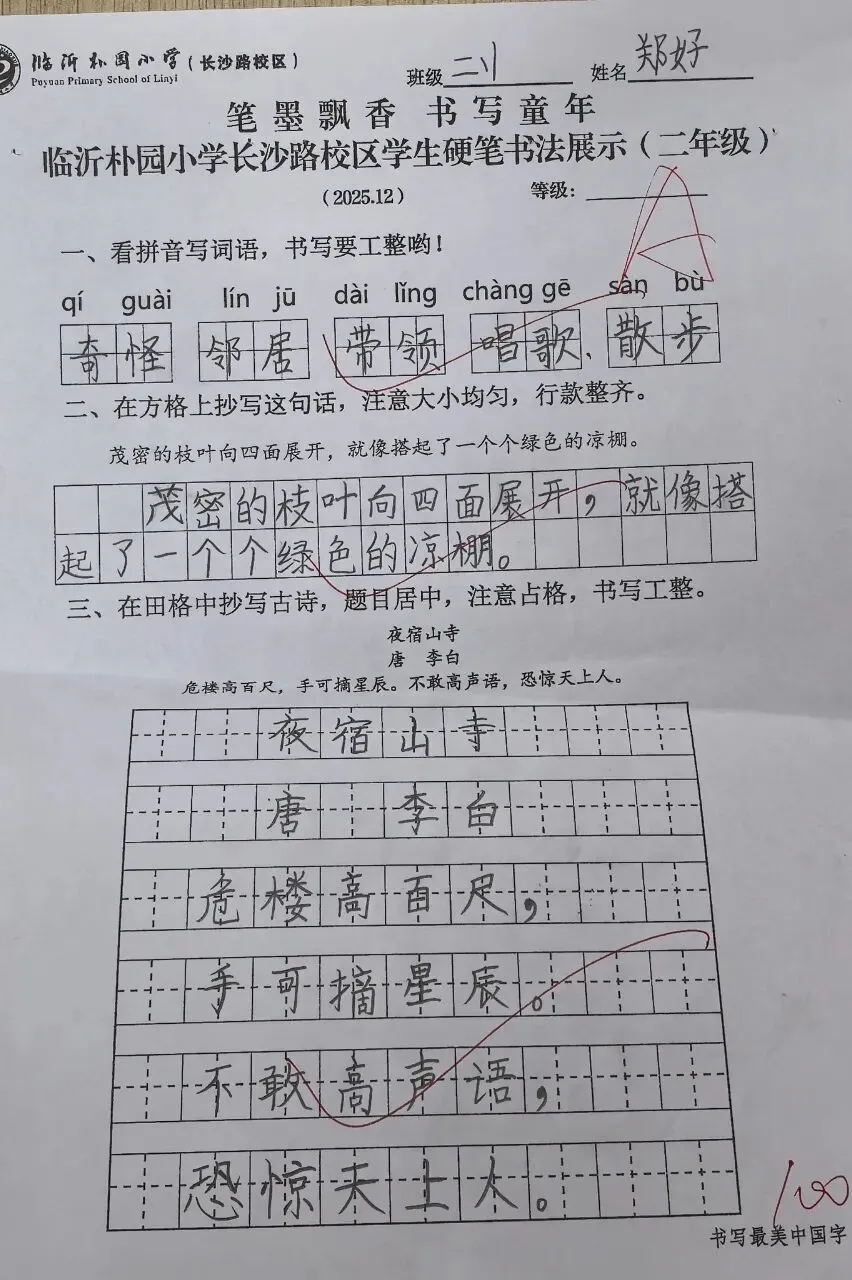 临沂朴园小学(长沙路校区)
Puyuan Primary School of Linyi
班级 二11 姓名 郑好
笔墨飘香 书写童年
临沂朴园小学长沙路校区学生硬笔书法展示(二年级)
(2025.12) 等级: A
一、看拼音写词语,书写要工整哟!
qí guài lín jū dài lǐng chàng gē sàn bù
奇怪 邻居 带领 唱歌、散步
二、在方格上抄写这句话,注意大小均匀,行款整齐。
茂密的枝叶向四面展开,就像搭起了一个个绿色的凉棚。
茂密的枝叶向四面展开,就像搭
起了一个个绿色的凉棚。
三、在田格中抄写古诗,题目居中,注意占格,书写工整。
夜宿山寺
唐 李白
危楼高百尺,手可摘星辰。不敢高声语,恐惊天上人。
夜宿山寺
唐 李白
危楼高百尺,
手可摘星辰。
不敢高声语,
恐惊天上人。
100
书写最美中国字